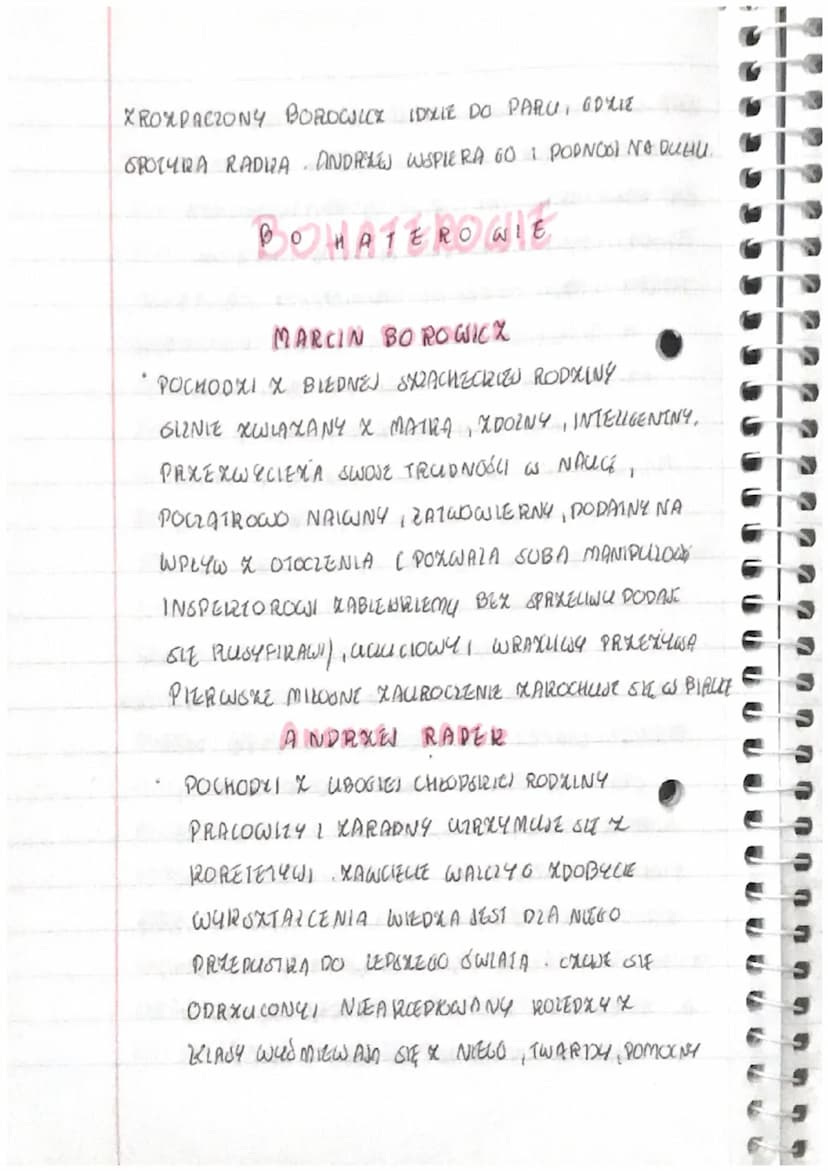 ZROZPACZONY BOROWICZ IDZIE DO PARU, GDZIE
SPOTYKA RADKA. ANDRZEJ WSPIERA GO I PODNOSI NA DUHU.
BOHATEROWIE
MARCIN BOROWICZ
• POCHODZI Z BIEDNEJ SZLACHECKIEJ RODZINY
SILNIE ZWIAZANY Z MATKĄ, ZDOLNY, INTELIGENTNY,
PRZEZWYCIEŻA SWOJE TRUDNOŚCI W NAUCĘ,
POCZĄTKOWO NAIWNY, ŁATWOWIERNY, PODATNY NA
WPŁYW Z OTOCZENIA (POZWALA SOBA MANIPULOWAĆ
INSPEKTOROWI ZABIELSKIEMU BEZ SPRZECIWU PODAJE
SIĘ RUSYFIKAWI), UCUCIOWY I WRAŻLIWY PRZEŻYWA
PIERWSZE MIŁOSNE ZAUROCZENIE ZAKOCHUJE SIĘ W BIRUCIE
ANDRZEJ RADEK
• POCHODZI Z UBOGIEJ CHŁOPSKIEJ RODZINY
PRACOWITY I ZARADNY UTRZYMUJE SIĘ Z
KOREPETYCJI. ZAWCIECIE WALCZY O ZDOBYCIE
WYKSZTAŁCENIA WIEDZA JEST DLA NIEGO
PRZEPUSTKA DO LEPSZEGO ŚWIATA CZUJE SIE
ODRZUCONY I NIEAKCEPTOWANY KOLEDZY Z
KLASY WYŚMIEWAJĄ SIĘ Z NIEGO, TWARDY, POMOCNY